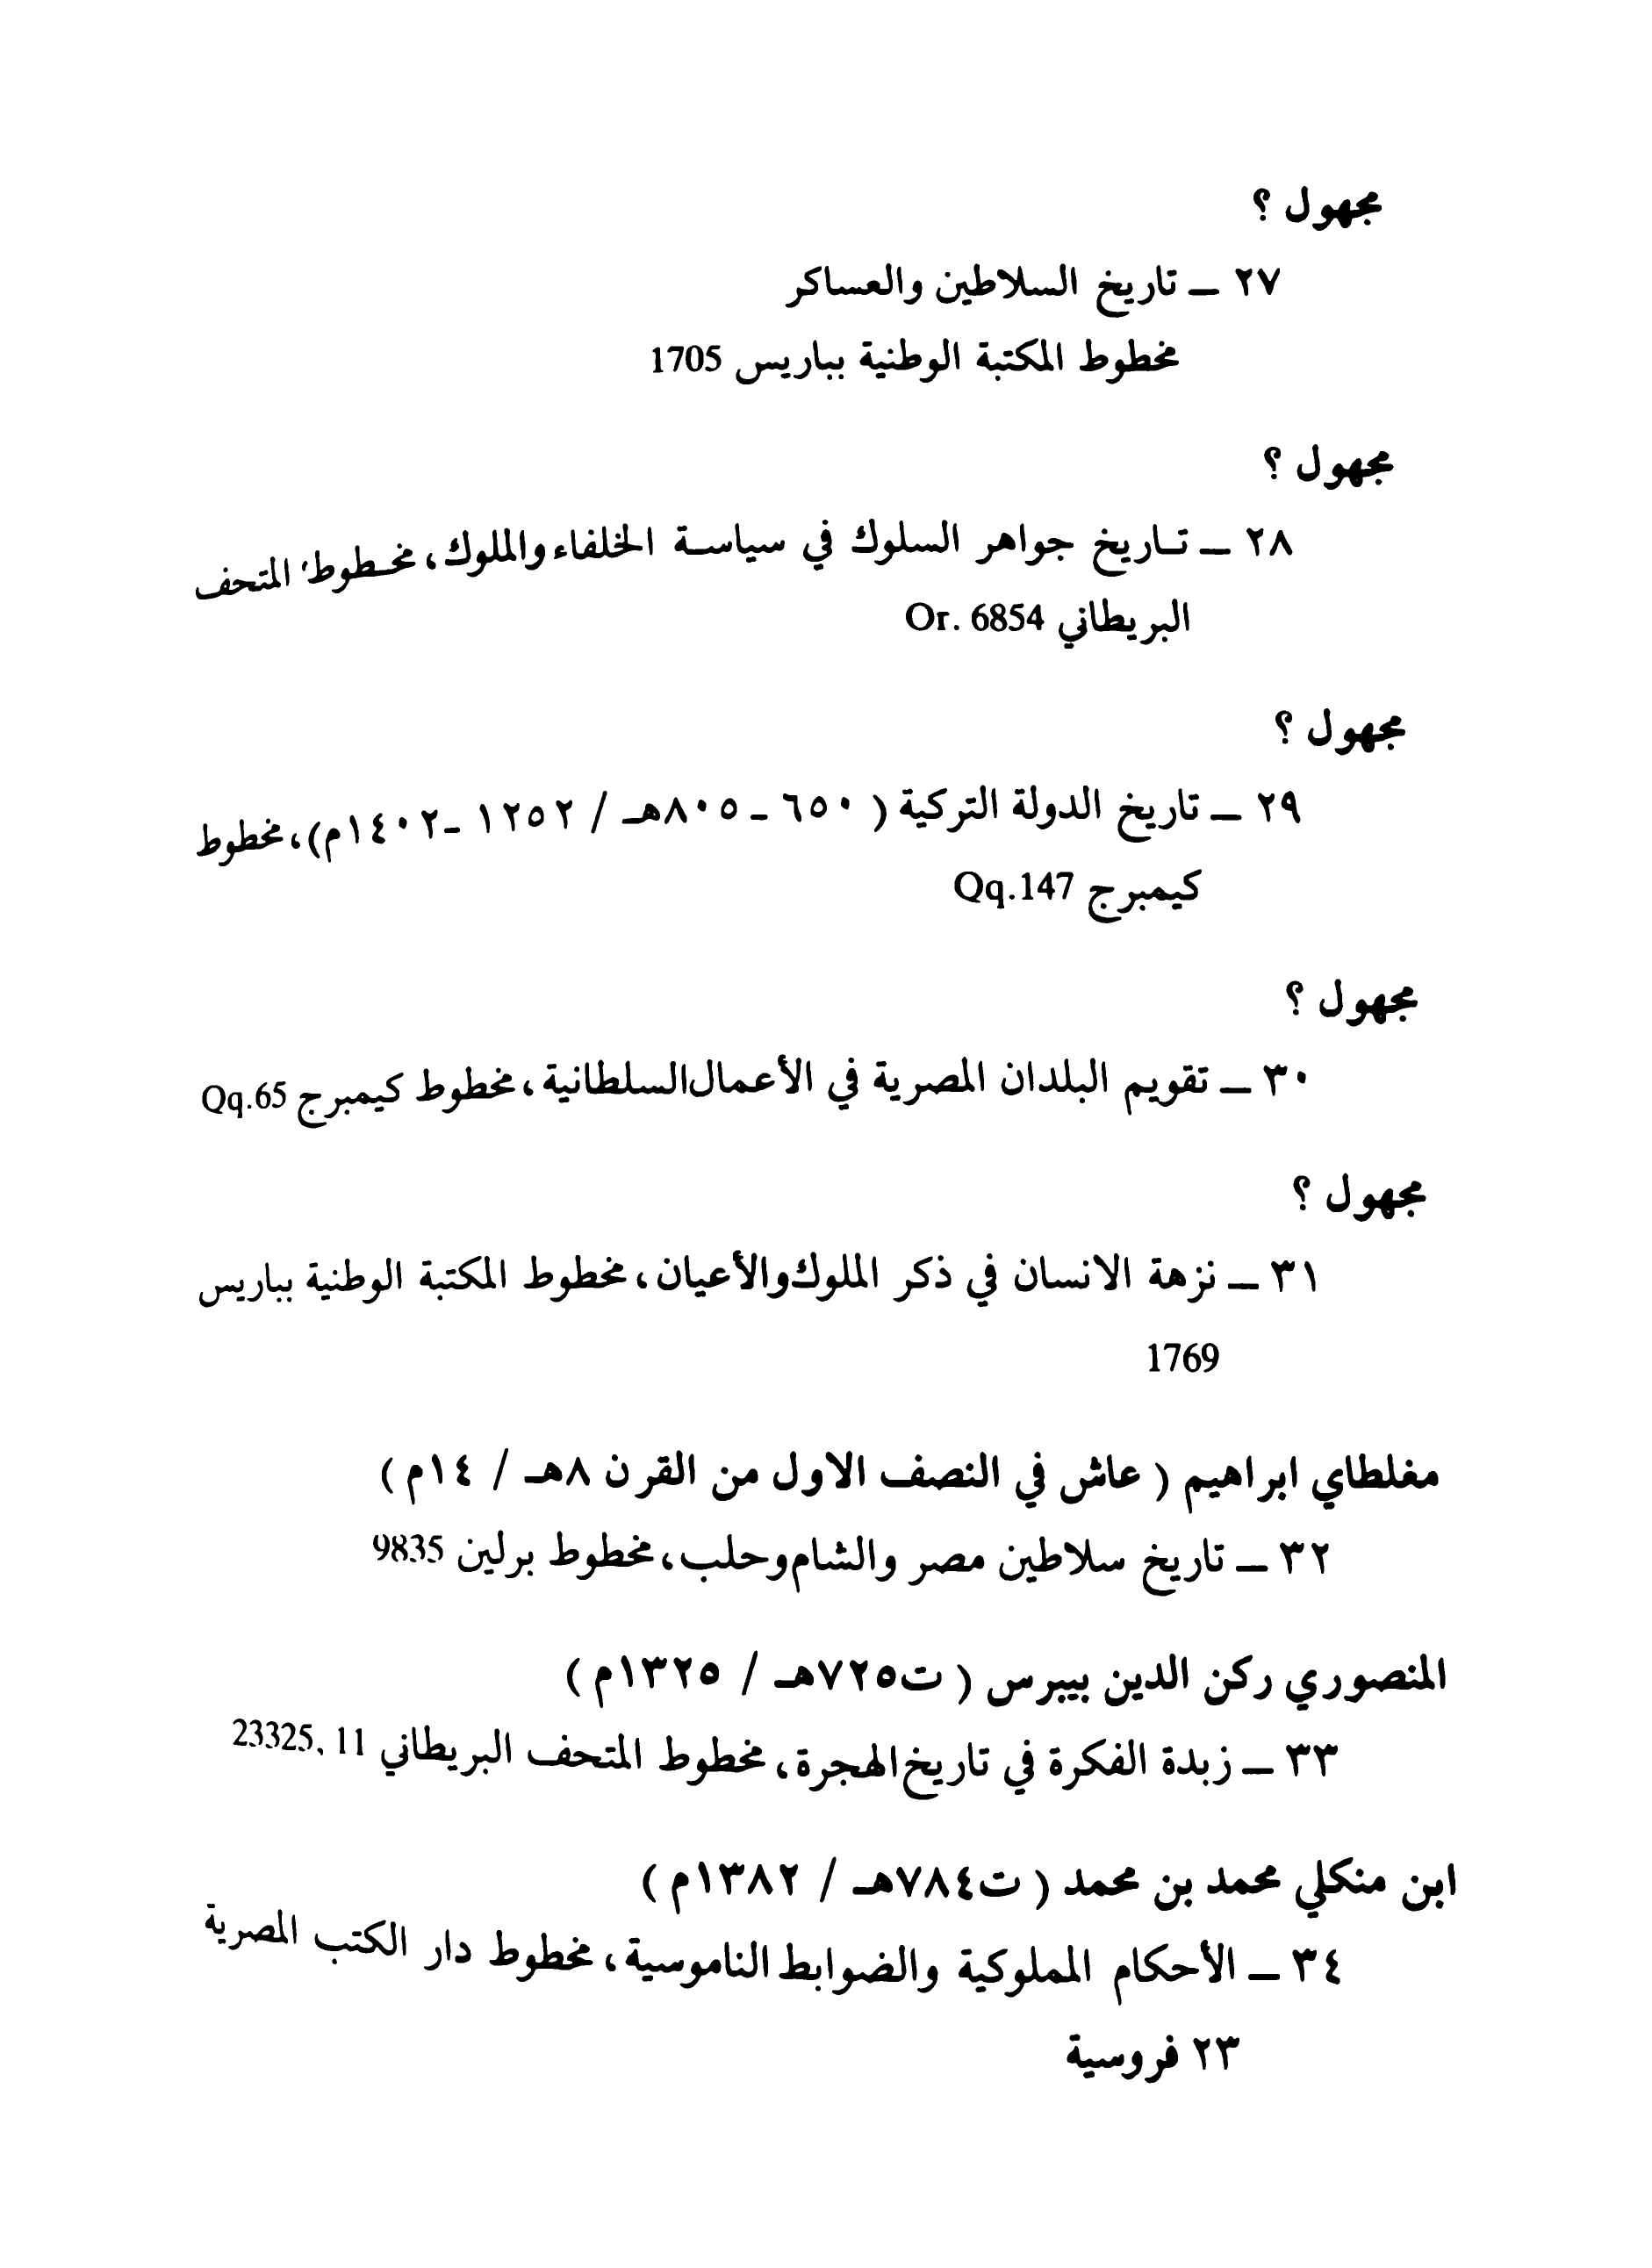 مجهول ؟
٢٧ – تاريخ السلاطين والعساكر
مخطوط المكتبة الوطنية بباريس 1705
مجهول ؟
٢٨ – تاريخ جواهر السلوك في سياسة الخلفاء والملوك، مخطوط المتحف
البريطاني Or. 6854
مجهول ؟
٢٩ – تاريخ الدولة التركية ( ٦٥٠ – ٨٠٥هـ / ١٢٥٢ – ١٤٠٢م)، مخطوط
كيمبرج Qq.147
مجهول ؟
٣٠ – تقويم البلدان المصرية في الأعمال السلطانية، مخطوط كيمبرج Qq.65
مجهول ؟
٣١ – نزهة الانسان في ذكر الملوك والأعيان، مخطوط المكتبة الوطنية بباريس
1769
مغلطاي ابراهيم ( عاش في النصف الاول من القرن ٨هـ / ١٤م )
٣٢ – تاريخ سلاطين مصر والشام وحلب، مخطوط برلين 9835
المنصوري ركن الدين بيبرس ( ت٧٢٥هـ / ١٣٢٥م )
٣٣ – زبدة الفكرة في تاريخ الهجرة، مخطوط المتحف البريطاني 23325, 11
ابن منكلي محمد بن محمد ( ت٧٨٤هـ / ١٣٨٢م )
٣٤ – الأحكام المملوكية والضوابط الناموسية، مخطوط دار الكتب المصرية
٢٣ فروسية